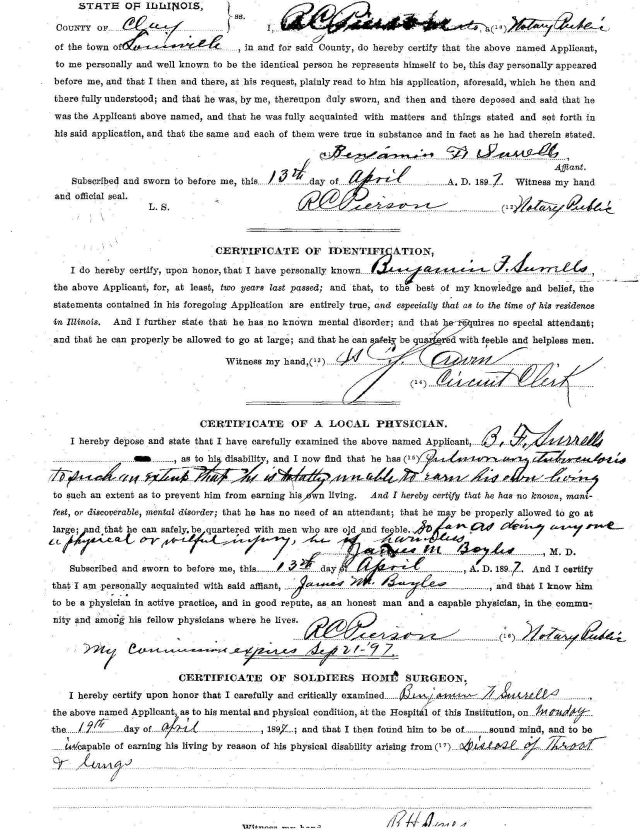 STATE OF ILLINOIS,
COUNTY OF Clay } ss. I, R C Pierson, a (14) Notary Public
of the town of Louisville, in and for said County, do hereby certify that the above named Applicant,
to me personally and well known to be the identical person he represents himself to be, this day personally appeared
before me, and that I then and there, at his request, plainly read to him his application, aforesaid, which he then and
there fully understood; and that he was, by me, thereupon duly sworn, and then and there deposed and said that he
was the Applicant above named, and that he was fully acquainted with matters and things stated and set forth in
his said application, and that the same and each of them were true in substance and in fact as he had therein stated.
Benjamin F. Surrells,
Affiant.
Subscribed and sworn to before me, this 13th day of April A. D. 1897. Witness my hand
and official seal.
L. S. R C Pierson (12) Notary Public
CERTIFICATE OF IDENTIFICATION,
I do hereby certify, upon honor, that I have personally known Benjamin F. Surrells,
the above Applicant, for, at least, two years last passed; and that, to the best of my knowledge and belief, the
statements contained in his foregoing Application are entirely true, and especially that as to the time of his residence
in Illinois. And I further state that he has no known mental disorder; and that he requires no special attendant;
and that he can properly be allowed to go at large; and that he can safely be quartered with feeble and helpless men.
Witness my hand, (13)
(14) Circuit Clerk
CERTIFICATE OF A LOCAL PHYSICIAN.
I hereby depose and state that I have carefully examined the above named Applicant, B. F. Surrells
, as to his disability, and I now find that he has (15) Pulmonary tuberculosis
to such an extent that he is totally unable to earn his own living
to such an extent as to prevent him from earning his own living. And I hereby certify that he has no known, mani-
fest, or discoverable, mental disorder; that he has no need of an attendant; that he may be properly allowed to go at
large; and that he can safely, be quartered with men who are old and feeble. So far as doing any one
a physical or wilful injury, he is harmless
James M Boyles, M. D.
Subscribed and sworn to before me, this 13th day of April, A. D. 1897. And I certify
that I am personally acquainted with said affiant, James M. Boyles, and that I know him
to be a physician in active practice, and in good repute, as an honest man and a capable physician, in the commu-
nity and among his fellow physicians where he lives.
R C Pierson (16) Notary Public
My Commission expires Sep 21-97.
CERTIFICATE OF SOLDIERS HOME SURGEON.
I hereby certify upon honor that I carefully and critically examined Benjamin F. Surrells
the above named Applicant, as to his mental and physical condition, at the Hospital of this Institution, on Monday
the 19th day of April, 1897; and that I then found him to be of sound mind, and to be
incapable of earning his living by reason of his physical disability arising from (17) Disease of Throat
& lungs
Witness my hand